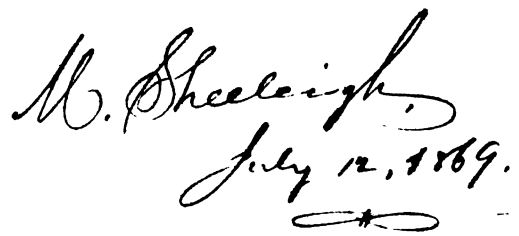 M. Sheeleigh.
July 12, 1869.